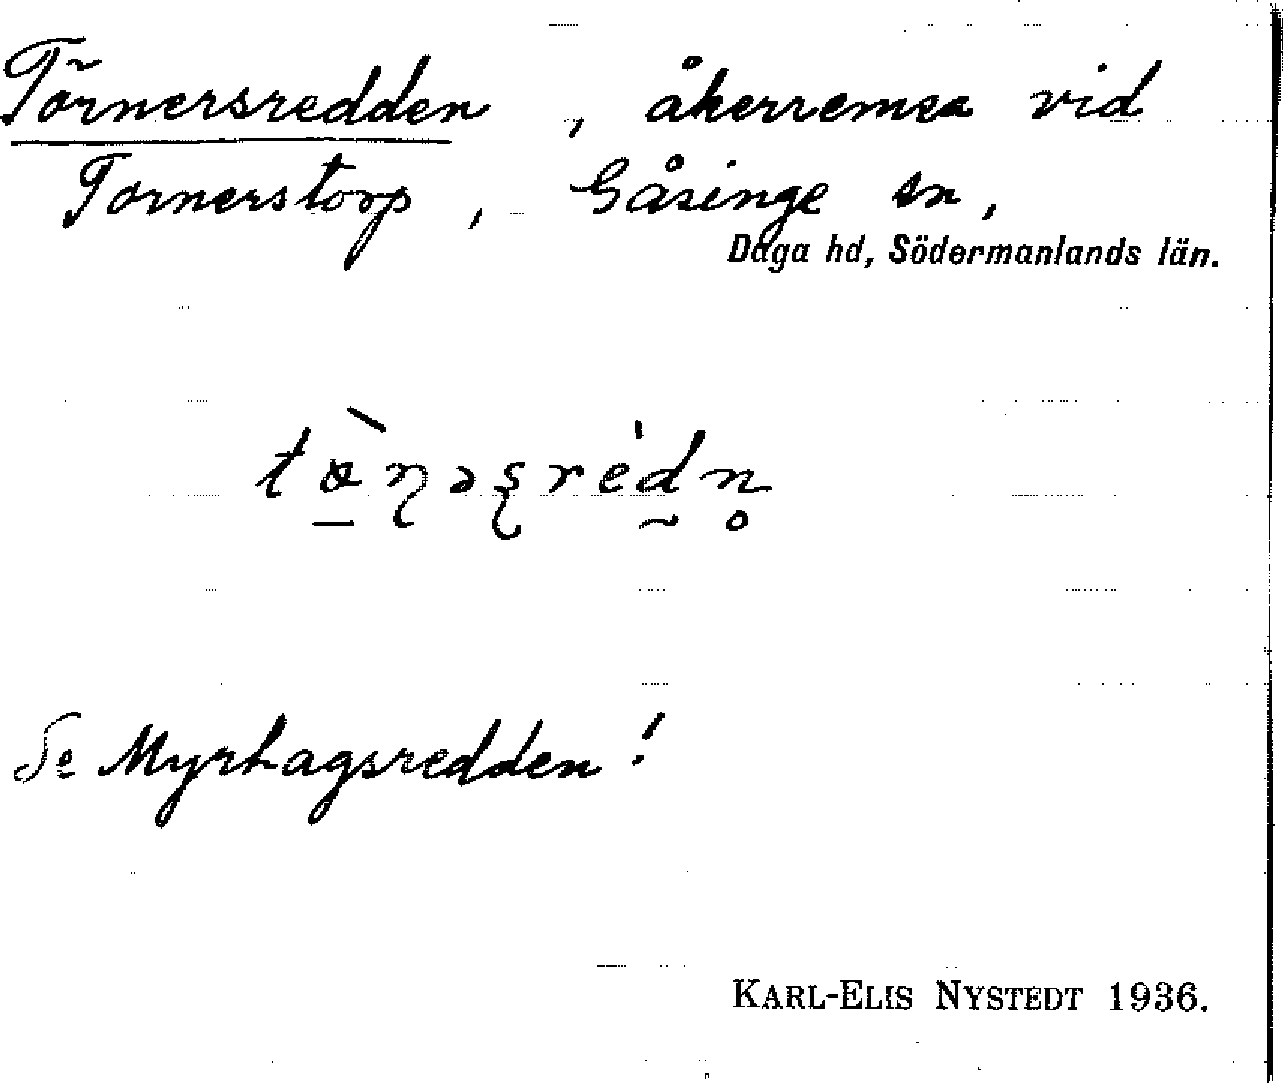 Törnersredden, åkerremsa vid
Tornerstorp, Gåsinge sn,
Daga hd, Södermanlands län.
Se Myrhagsredden!
KARL-ELIS NYSTEDT 1936.